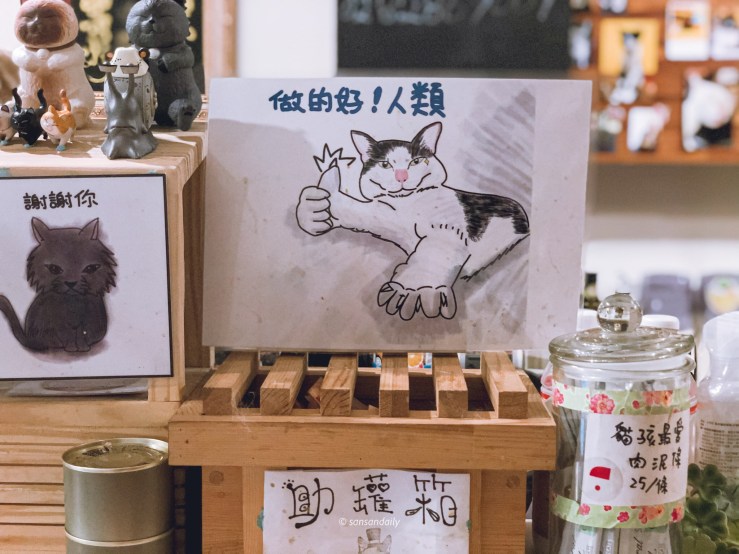 做的好！人類
謝謝你
貓孩最愛
肉泥條
25/條
助罐箱
© sansandaily